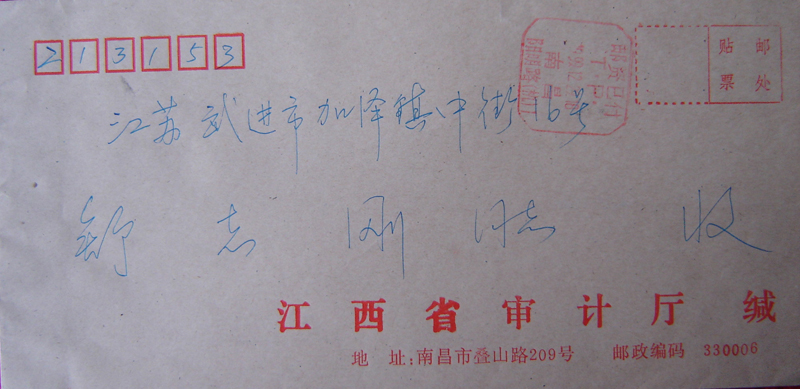 213153
贴 邮
票 处
江苏武进市加泽镇中街16号
舒志刚同志 收
江西省审计厅 缄
地 址:南昌市叠山路209号 邮政编码 330006